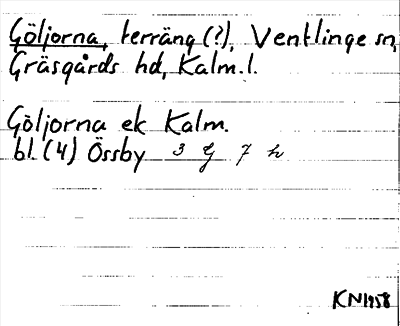 Göljorna, terräng (?), Ventlinge sn,
Gräsgårds hd, Kalm. l.
Göljorna ek Kalm.
bl. (4) Össby 3 G 7 h
KN 1958